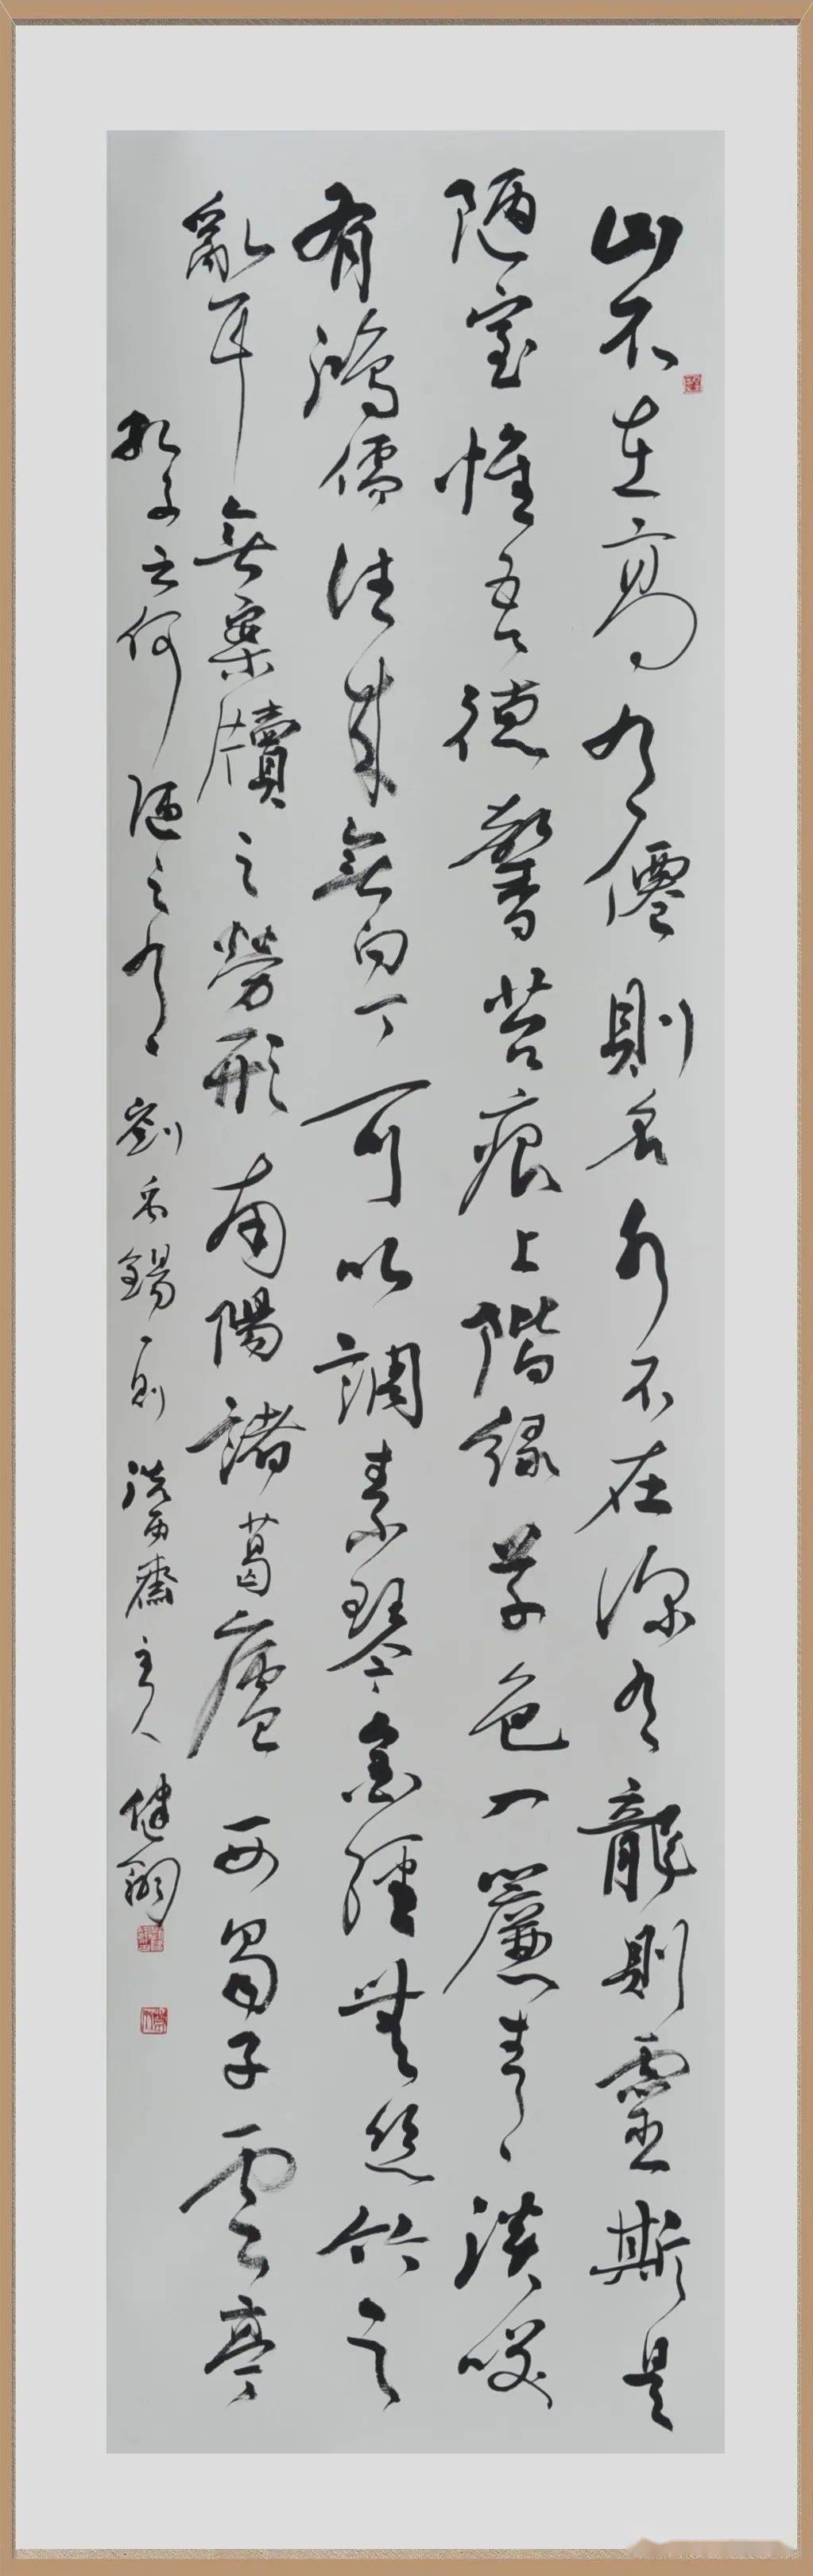 山不在高有僊則名水不在深有龍則靈斯是
陋室惟吾德馨苔痕上階綠草色入簾青、談笑
有鴻儒往來無白丁可以調素琴金經無絲竹之
亂耳無案牘之勞形南陽諸葛廬西蜀子雲亭
孔子云何陋之有、劉禹錫一則 齋主人健翔